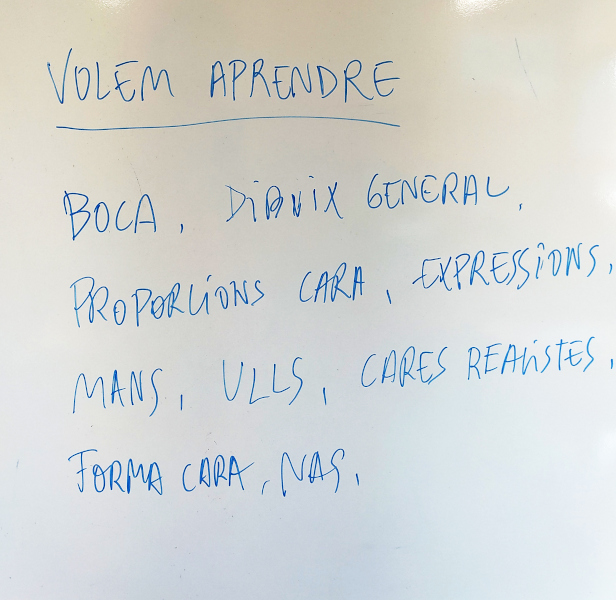 VOLEM APRENDRE
BOCA, DIBUIX GENERAL,
PROPORCIONS CARA, EXPRESSIONS,
MANS, ULLS, CARES REALISTES,
FORMA CARA, NAS,